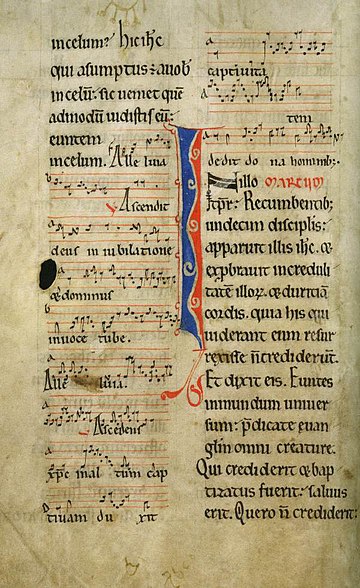 in celum? hic ihc
qui asumptus : a uob
in celū : sic ueniet quē
admodū uidistis eū :
euntem
in celum. Alle luia
Ascendit
deus in iubilatione
& dominus
in uoce tube.
Alle luia.
Ascendens
xp̄c in al tum cap
tiuam du xit
captiuita
tem
dedit do na hominib;
In illo MARCUM
t̄pr: Recumbentib;
undecim disciplis :
apparuit illis ihc. &
exprobrauit increduli
tatē illoꝝ. & duritiā
cordis. quia his qui
uiderant eum resur
rexisse ñ crediderūt.
Et dixit eis. Euntes
in mundum uniuer
sum : p̄dicate euan
gliū omni creature.
Qui crediderit & bap
tizatus fuerit : saluus
erit. Qui uero ñ crediderit :